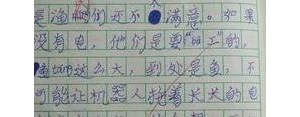 是渔民们还不满意。如果
没有电,他们是要"日工"的,
tāng这么大,到处是鱼,不
可能让机器人拖着长长的电